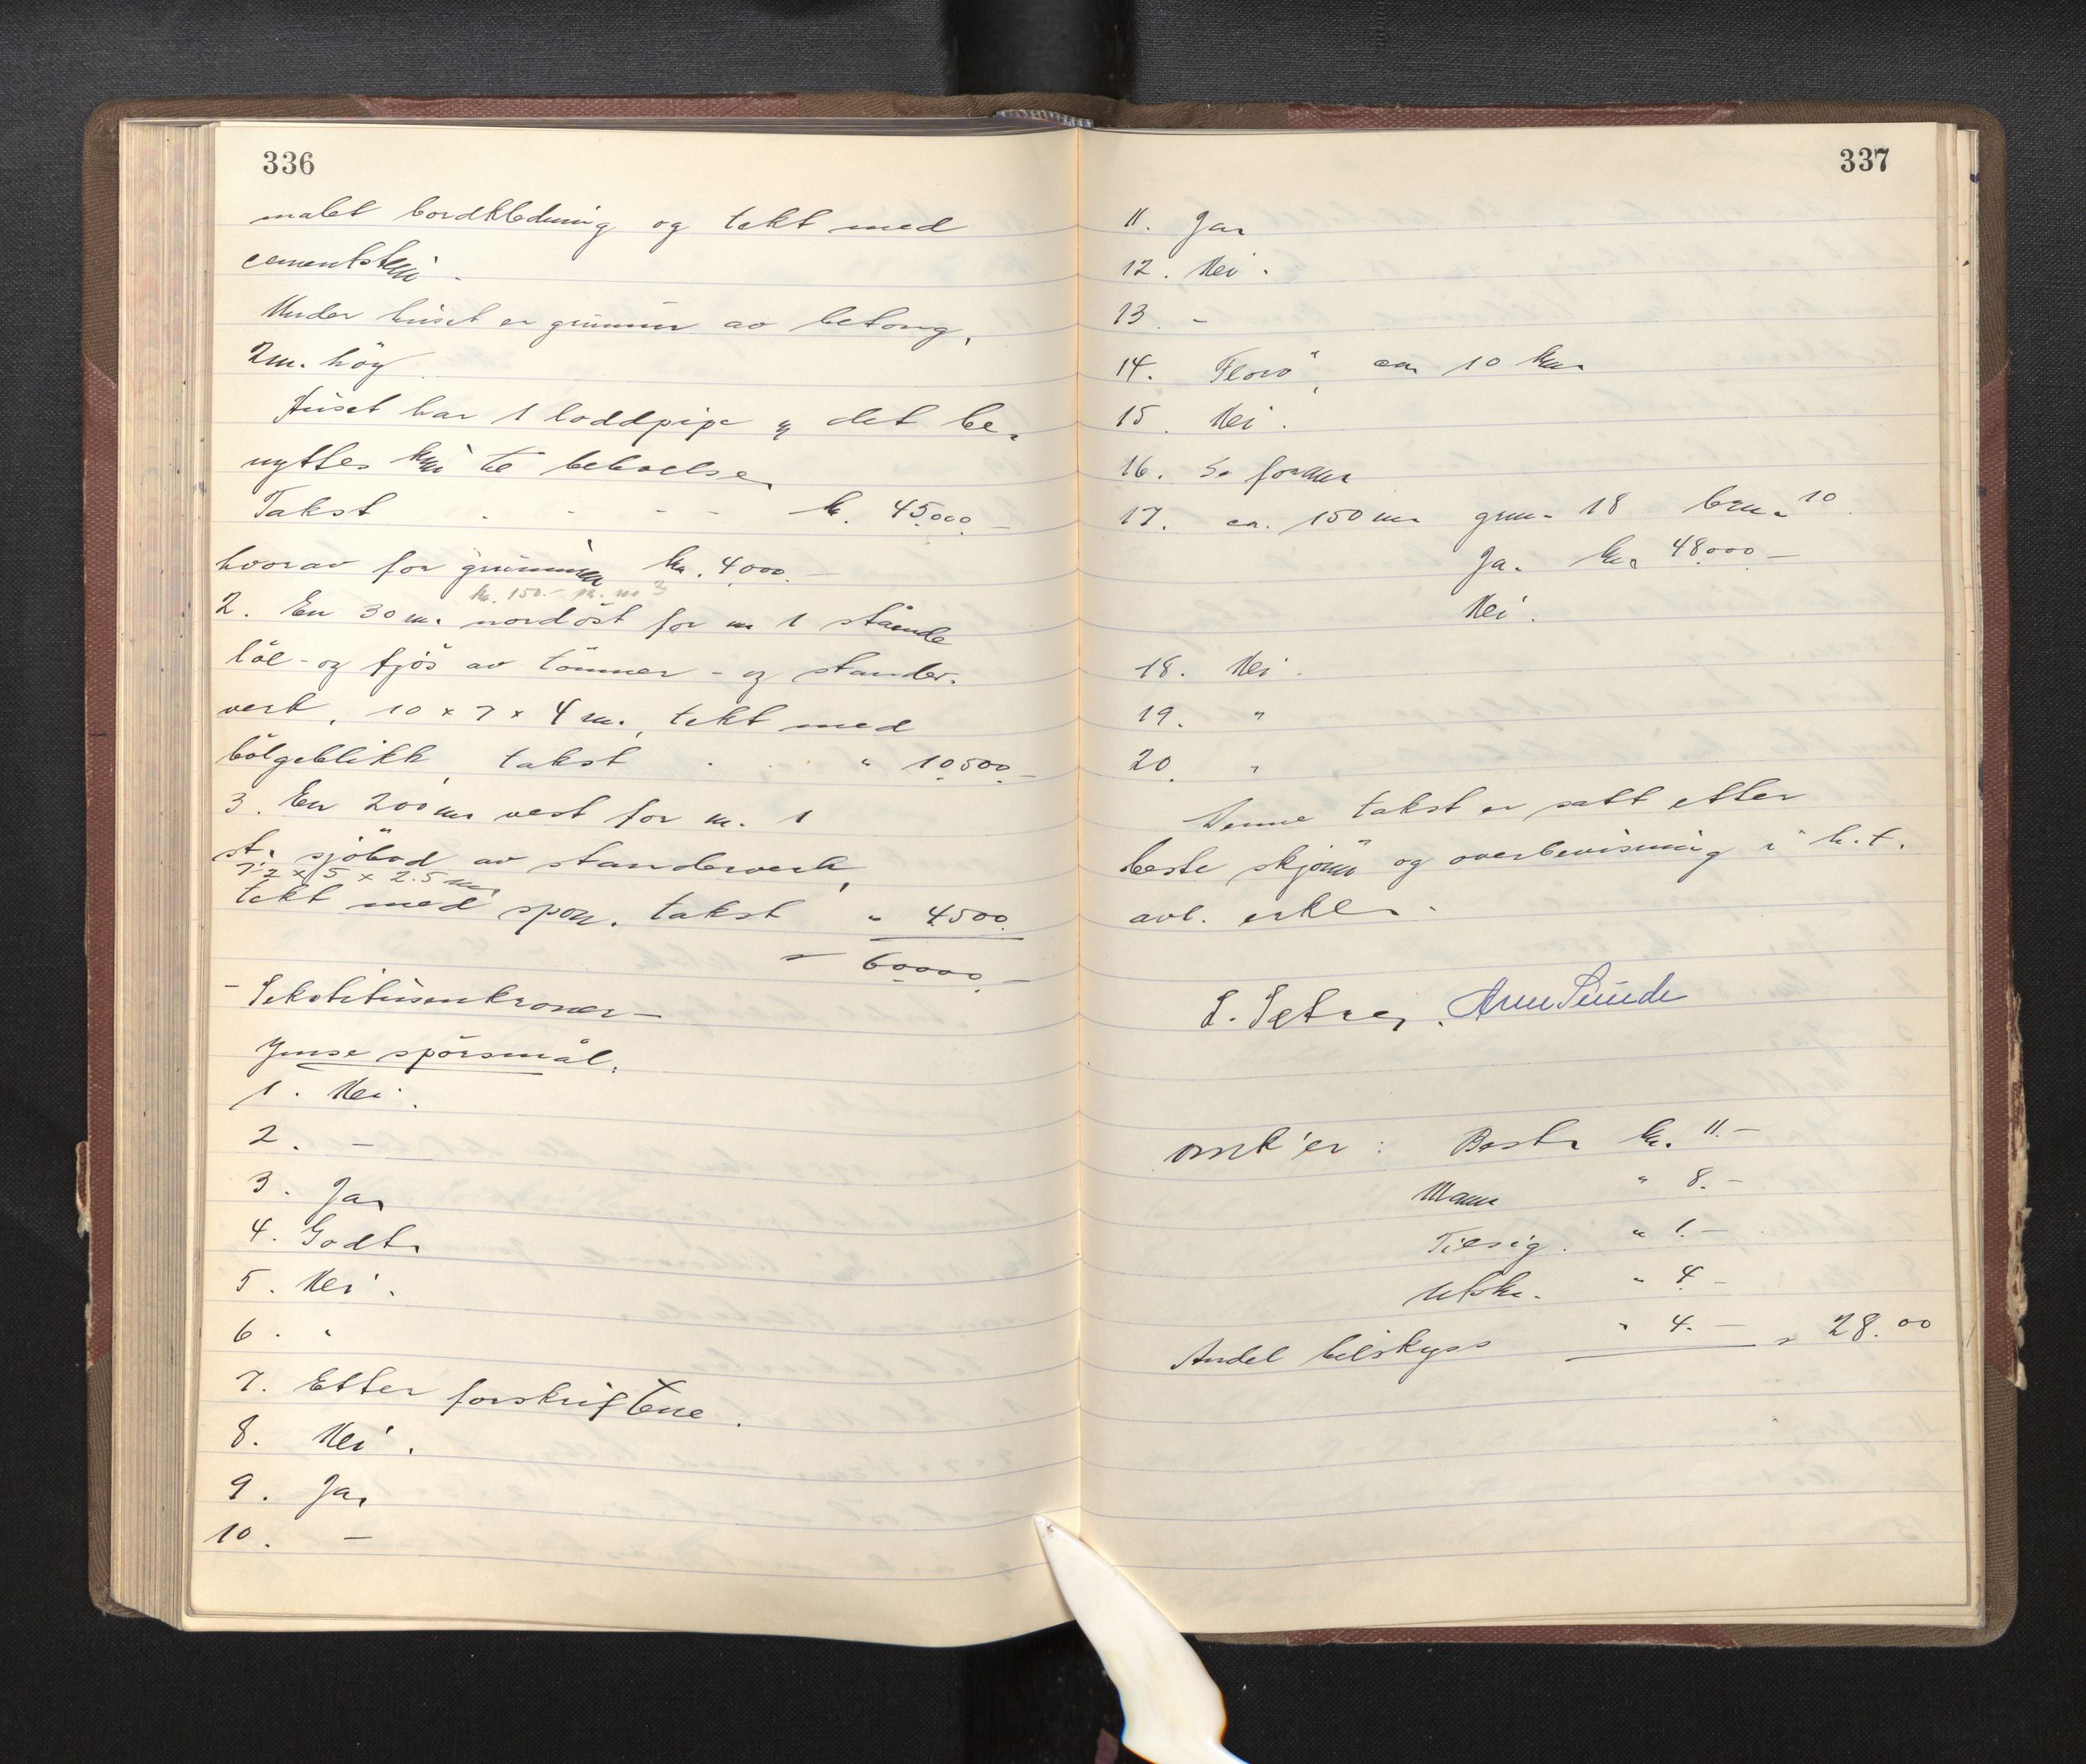 336
malet bordkledning og tekt med
cementstein.
Under huset er grunnur av betong,
2m. høg
Huset har 1 loddpipe og det be-
nyttes kun til beboelse.
Takst - - - - kr. 45.000.-
hvorav for grunnmuren kr. 4.000.-
kr. 150.- pr. m3
2. En 30 m. nordöst for nr 1 stående
löe- og fjös av tömmer - og stander-
verk, 10 x 7 x 4 m., tekt med
bölgeblikk, takst . . . " 10.500.-
3. En 200 m. vest for nr. 1
st. sjöbod av standerverk,
7.2 x 5 x 2.5 m.
tekt med spon. takst " 4.500.
" 60000.-
- Sekstitusenkroner -
Ymse spörsmål.
1. Nei.
2. -
3. Ja.
4. Godt.
5. Nei.
6. "
7. Etter forskriftene.
8. Nei.
9. Ja.
10. -
337
11. Ja.
12. Nei.
13. -
14. Florö, ca. 10 km.
15. Nei.
16. Se foran.
17. ca. 150 m. gnr. 18 bnr. 10.
Ja. kr. 48.000.-
Nei.
18. Nei.
19. "
20. "
Denne takst er satt etter
beste skjönn og overbevisning i h.t.
avl. erkl.
S. Setre, Arne Sunde
Omk'er: Best. kr. 11.-
Mann " 8.-
Tilsig. " 1.-
Utskr. " 4.-
Andel bilskyss " 4.- " 28.00